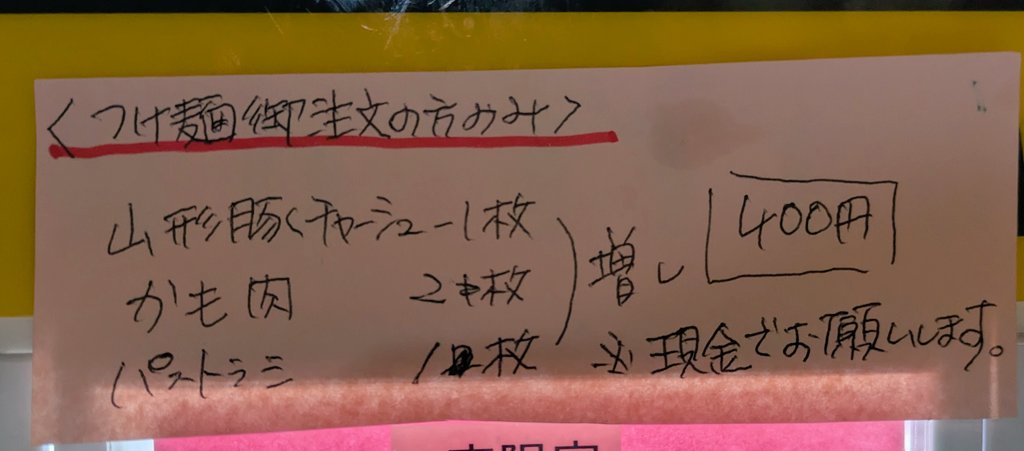 〈つけ麺御注文の方のみ〉
山形豚くチャーシュー1枚
かも肉 2枚
パストラミ 1枚
増し
400円
※現金でお願いします。